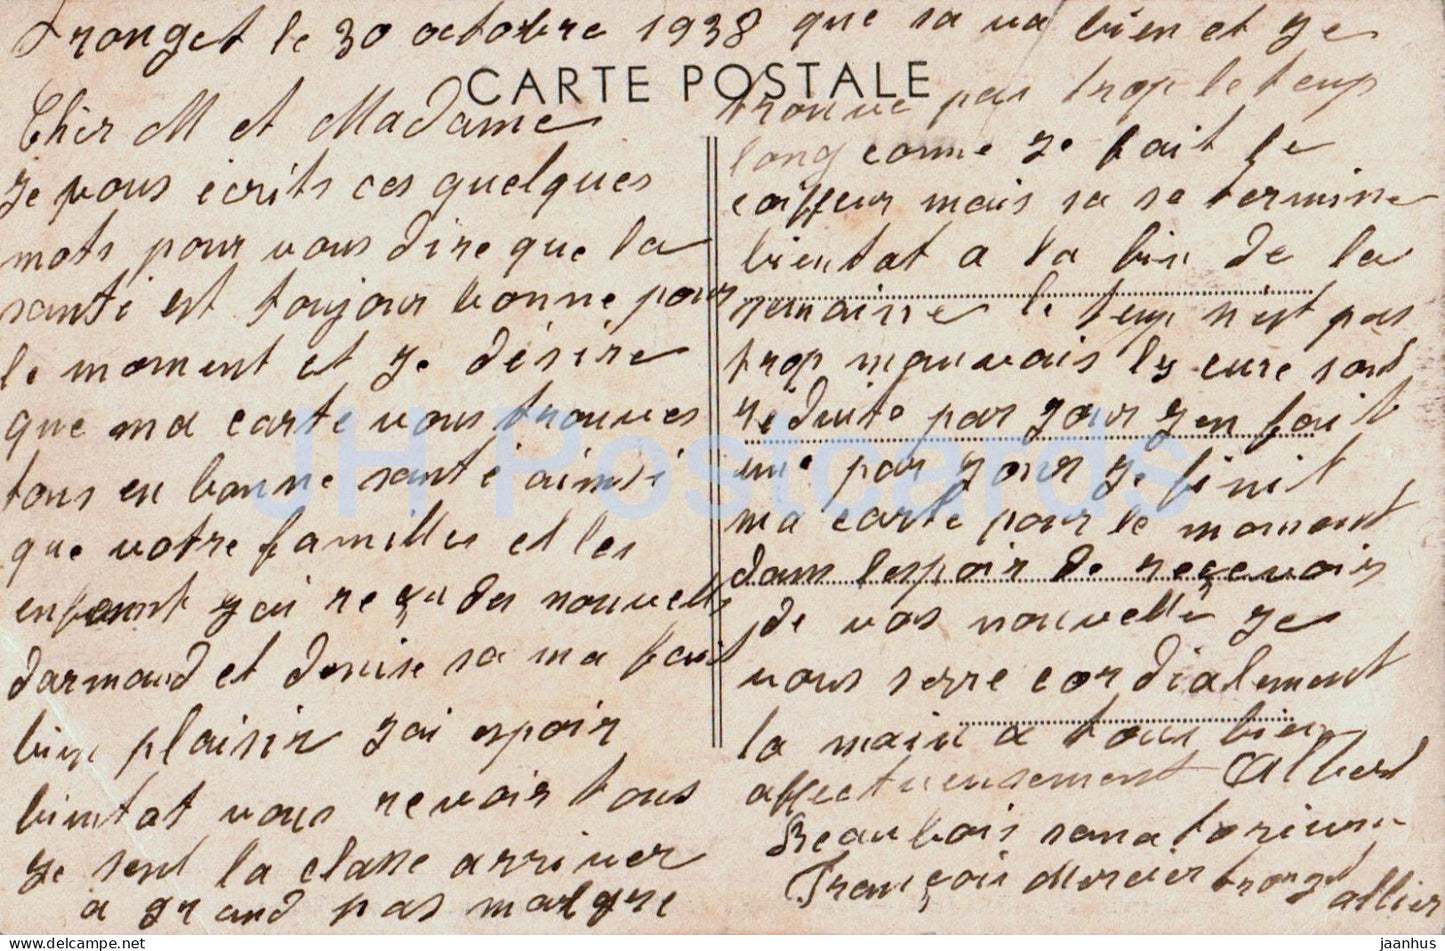 Tronget le 30 octobre 1938
CARTE POSTALE
Cher M et Madame
je vous écrits ces quelques
mots pour vous dire que la
santé est toujour bonne pour
le moment et je désire
que ma carte vous trouves
tous en bonne santé ainsi
que votre familles et les
enfant jai reçu des nouvelle
darmand et denise sa ma fait
bien plaisir jai espoir
bientat vous revoir tous
je sent la classe arriver
a grand pas malgre
que sa va bien et je
trouve pas trop le temp
long comme je fait le
coiffeur mais sa se termine
bientat a la fin de la
semaine le temp n'est pas
trop mauvais les cure sont
réduite par jour jen fait
une par jour je finit
ma carte pour le moment
dans lespoir de reçevoir
de vos nouvelle je
vous serre cordialement
la main a tous bien
affectueusement Albert
Beaubois sanatorium
François Mercier tronget
allier
JH Postcards
delcampe.net
jaanhus